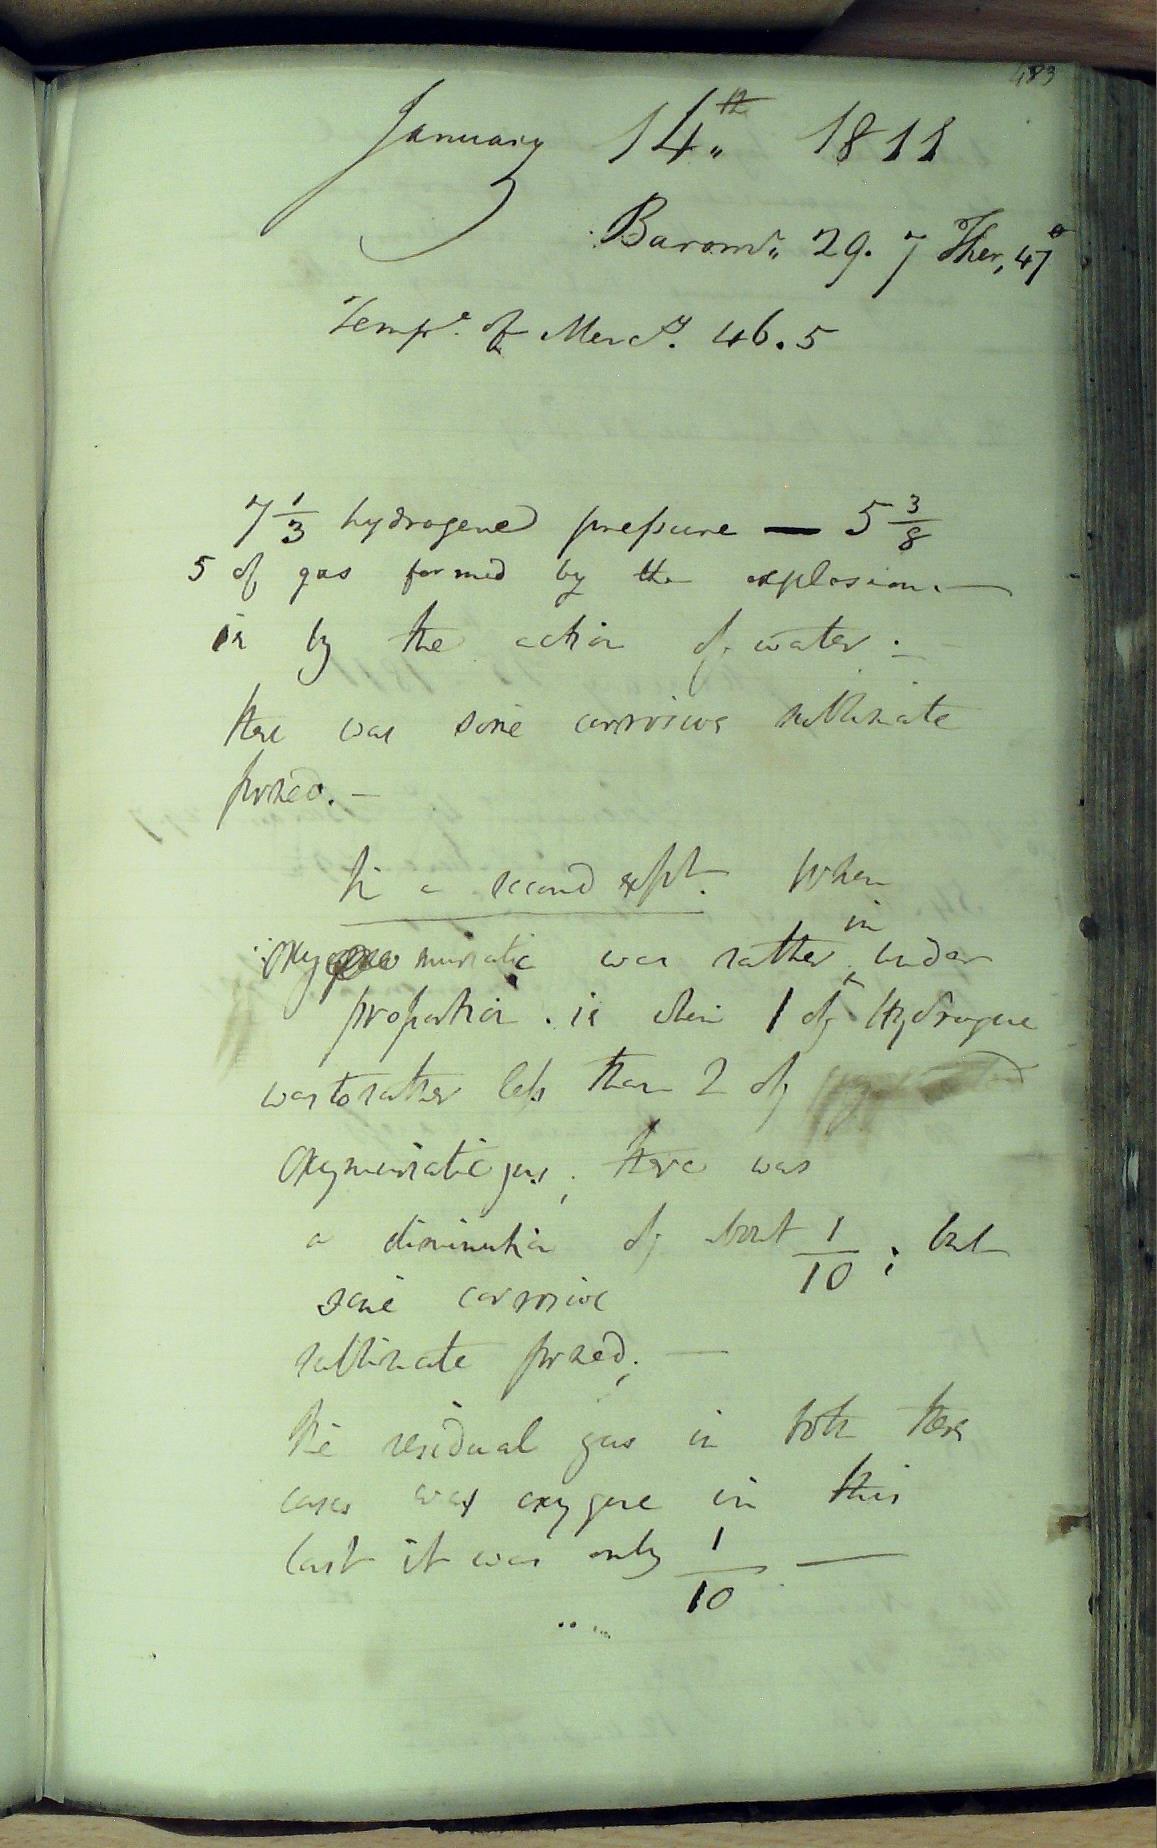 483
January 14th 1811
Baromr. 29.7 Ther, 47°
Tempe. of Mercy. 46.5
7 1/3 hydrogene pressure — 5 3/8
5 of gas formed by the explosion. —
ie by the action of water : —
there was some corrosive sublimate
formed. —
In a second expt. When
oxy muriatic was rather in under
proportion . ie when 1 of Hydrogene
was to rather less than 2 of
Oxymuriatic gas; there was
a diminution of about 1/10 ; but
some corrosive
sublimate formed; —
The residual gas in both these
cases was oxygene in this
last it was only 1/10 —